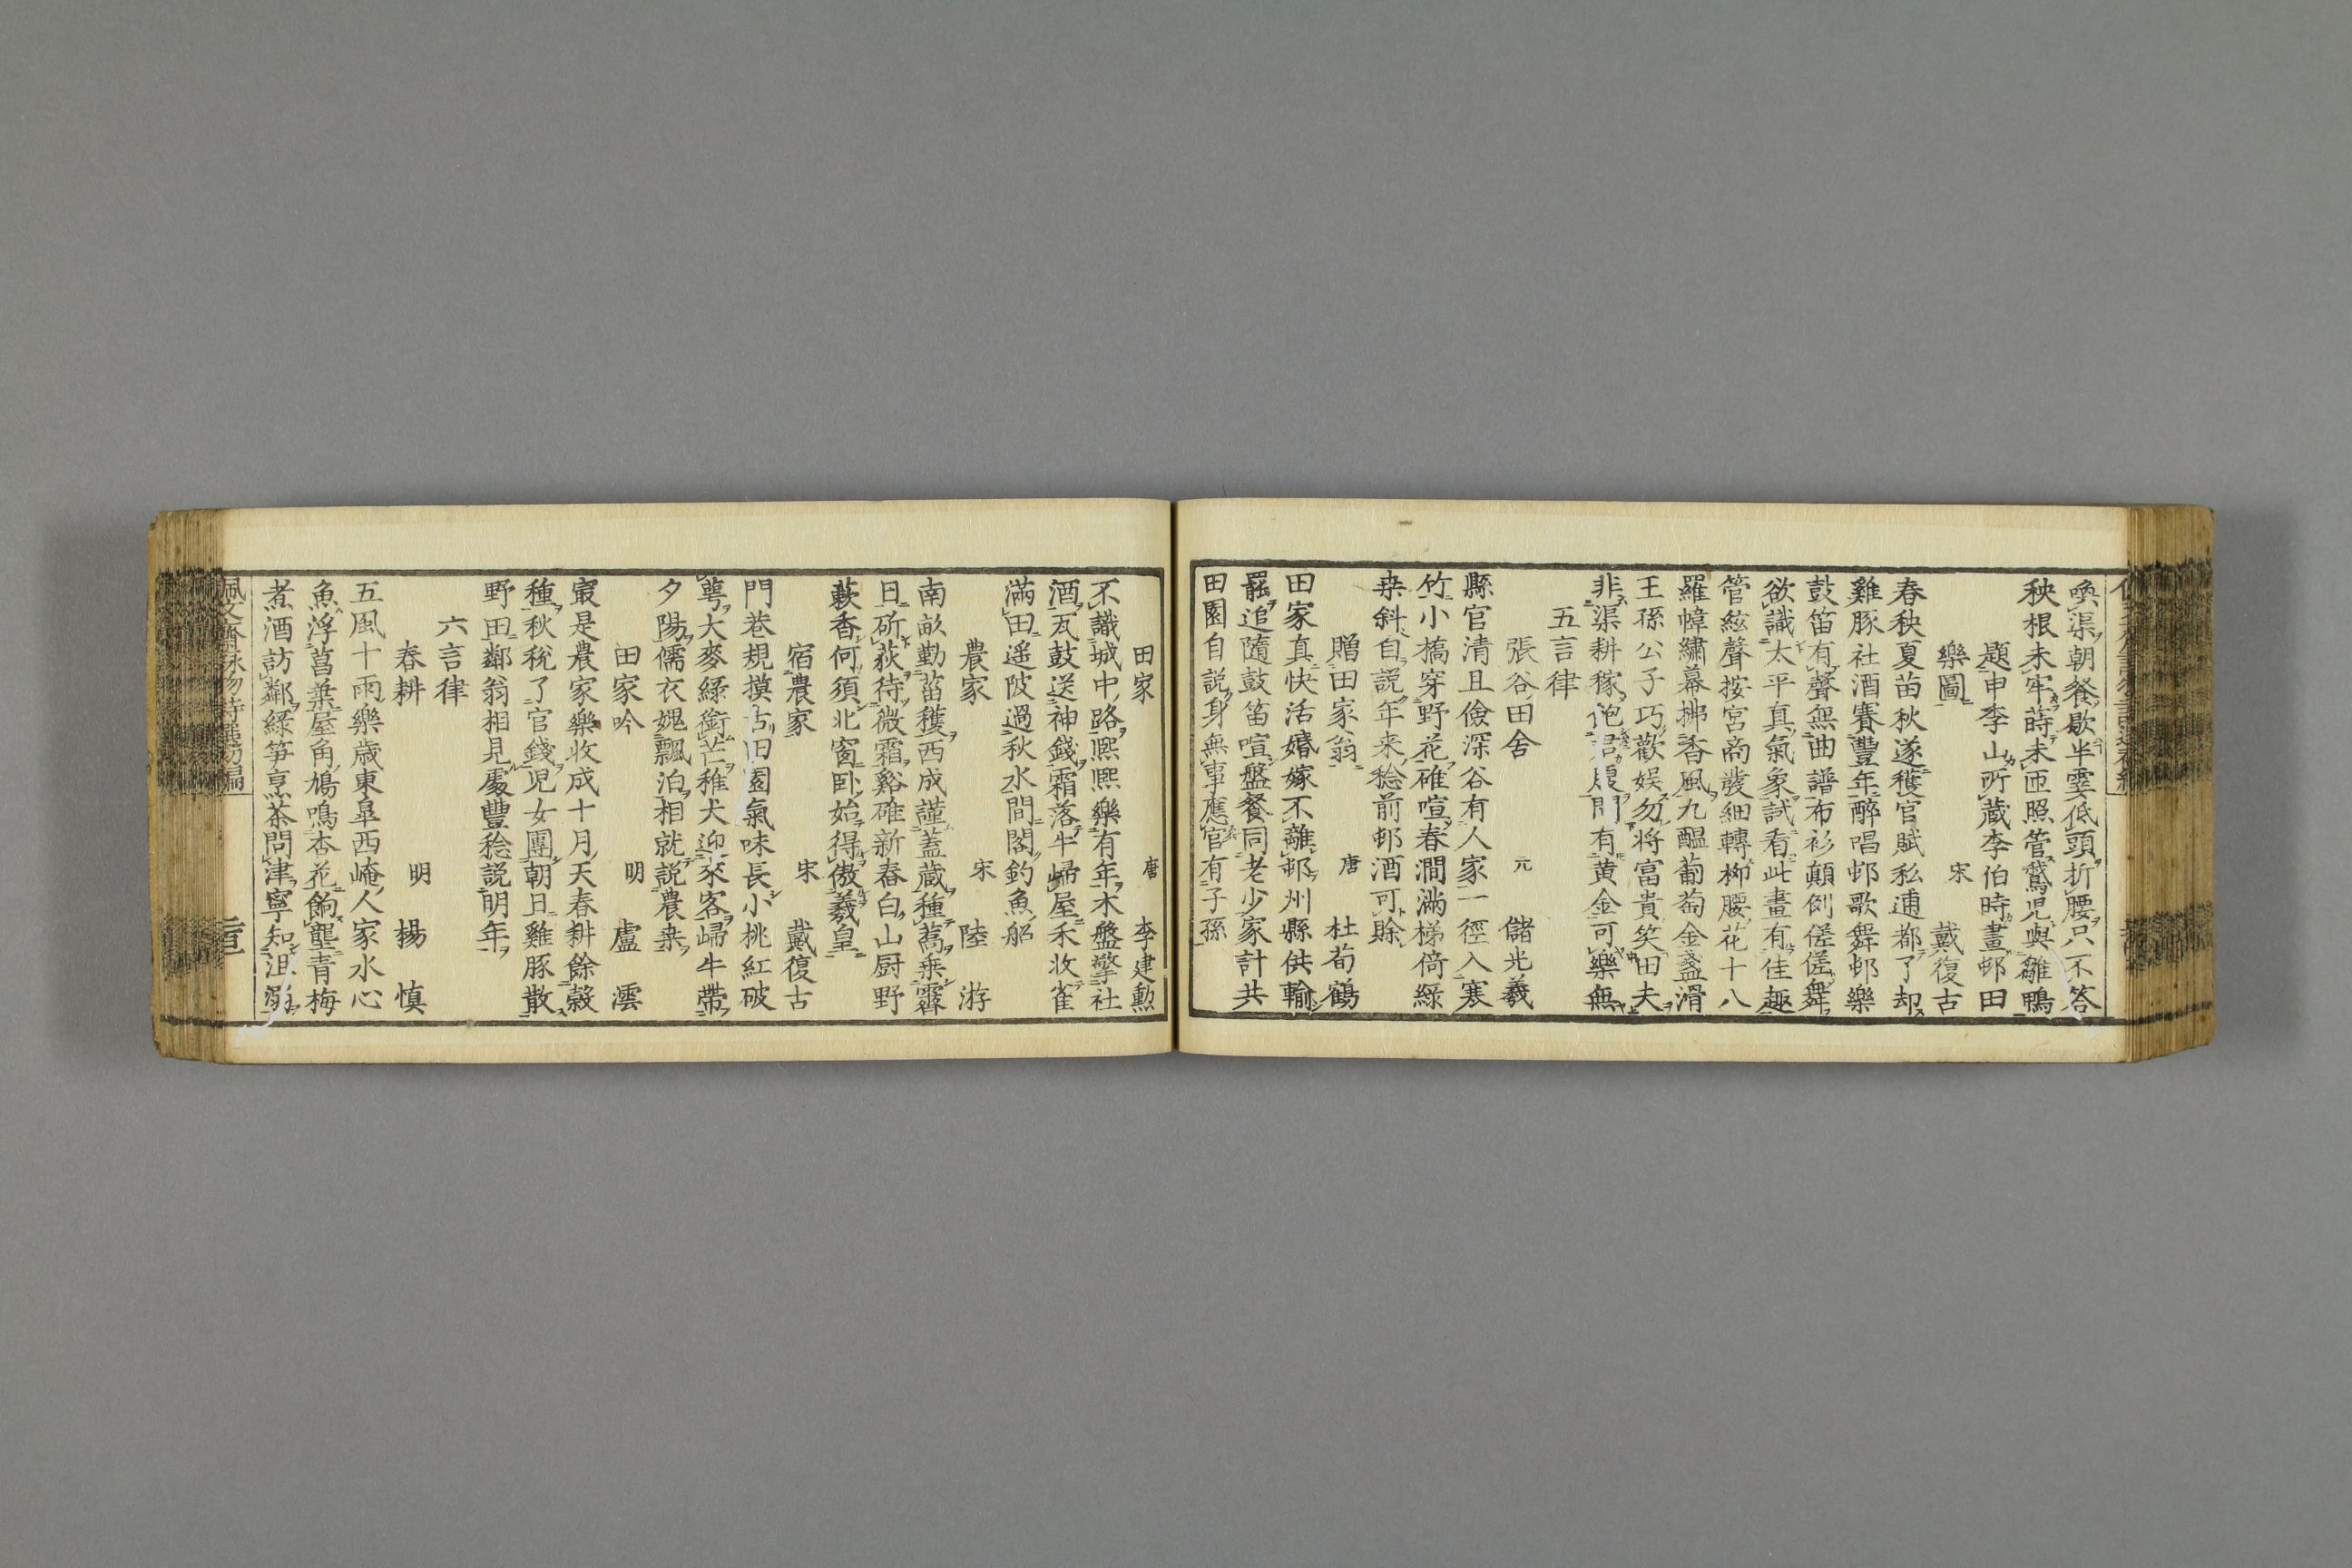 喚渠朝餐歇半霎低頭折腰只不答
秧根未牢蒔未匝照管鵞児與雛鴨
題申季山所蔵李伯時畫邨田
樂圖 宋 戴復古
春秧夏苗秋遂穫官賦私逋都了却
雞豚社酒賽豐年醉唱邨歌舞邨樂
鼓笛有聲無曲譜布衫顛倒傞傞舞
欲識太平真氣象試看此畫有佳趣
管絃聲按宮商發細轉柳腰花十八
羅幃繡幕拂香風九醖葡萄金盞滑
王孫公子巧歡娯勿将富貴笑田夫
非渠耕稼飽君腹門有黄金可樂無
五言律
張谷田舍 元 儲光羲
縣官清且儉深谷有人家一徑入寒
竹小橋穿野花碓喧春澗滿梯倚綠
桒斜自説年来稔前邨酒可賒
贈田家翁 唐 杜荀鶴
田家真快活婚嫁不離邨州縣供輸
罷追隨鼓笛喧盤餐同老少家計共
田園自説身無事應官有子孫
田家 唐 李建勲
不識城中路熙熙樂有年木盤擎社
酒瓦鼓送神錢霜落牛歸屋禾收雀
滿田遥陂過秋水間閣釣魚舩
農家 宋 陸游
南畝勤菑穫西成謹蓋蔵種蒿乗霽
日斫荻待微霜谿碓新舂白山厨野
蔌香何須北窗卧始得傲羲皇
宿農家 宋 戴復古
門巷規摸古田園氣味長小桃紅破
萼大麥綠銜芒稚犬迎来客歸牛帶
夕陽儒衣媿飄泊相就説農桒
田家吟 明 盧澐
㝡是農家樂收成十月天春耕餘穀
種秋稅了官錢児女團朝日雞豚散
野田鄰翁相見處豐稔説明年
六言律
春耕 明 楊慎
五風十雨樂歳東皐西崦人家水心
魚浮菖葉屋角鳩鳴杏花餉壟青梅
煮酒訪鄰綠笋烹茶問津寧知沮溺
佩文齋詠物詩選初編